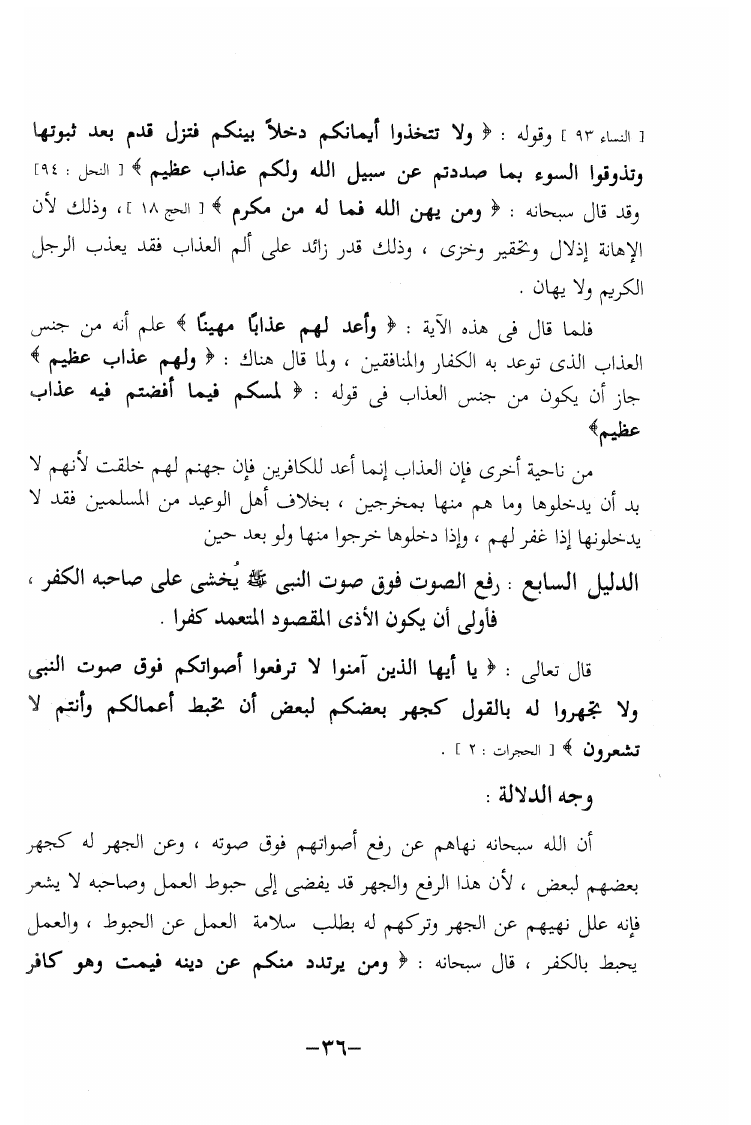 [ النساء ٩٣ ] وقوله : ﴿ ولا تتخذوا أيمانكم دخلاً بينكم فتزل قدم بعد ثبوتها
وتذوقوا السوء بما صددتم عن سبيل الله ولكم عذاب عظيم ﴾ [ النحل : ٩٤]
وقد قال سبحانه : ﴿ ومن يهن الله فما له من مكرم ﴾ [ الحج ١٨ ]، وذلك لأن
الإهانة إذلال وتحقير وخزى ، وذلك قدر زائد على ألم العذاب فقد يعذب الرجل
الكريم ولا يهان .
فلما قال فى هذه الآية : ﴿ وأعد لهم عذابًا مهينًا ﴾ علم أنه من جنس
العذاب الذى توعد به الكفار والمنافقين ، ولما قال هناك : ﴿ ولهم عذاب عظيم ﴾
جاز أن يكون من جنس العذاب فى قوله : ﴿ لمسكم فيما أفضتم فيه عذاب
عظيم﴾
من ناحية أخرى فإن العذاب إنما أعد للكافرين فإن جهنم لهم خلقت لأنهم لا
بد أن يدخلوها وما هم منها بمخرجين ، بخلاف أهل الوعيد من المسلمين فقد لا
يدخلونها إذا غفر لهم ، وإذا دخلوها خرجوا منها ولو بعد حين
الدليل السابع : رفع الصوت فوق صوت النبى ﷺ يُخشى على صاحبه الكفر ،
فأولى أن يكون الأذى المقصود المتعمد كفرا .
قال تعالى : ﴿ يا أيها الذين آمنوا لا ترفعوا أصواتكم فوق صوت النبى
ولا تجهروا له بالقول كجهر بعضكم لبعض أن تحبط أعمالكم وأنتم لا
تشعرون ﴾ [ الحجرات : ٢ ] .
وجه الدلالة :
أن الله سبحانه نهاهم عن رفع أصواتهم فوق صوته ، وعن الجهر له كجهر
بعضهم لبعض ، لأن هذا الرفع والجهر قد يفضى إلى حبوط العمل وصاحبه لا يشعر
فإنه علل نهيهم عن الجهر وتركهم له بطلب سلامة العمل عن الحبوط ، والعمل
يحبط بالكفر ، قال سبحانه : ﴿ ومن يرتدد منكم عن دينه فيمت وهو كافر
–٣٦–